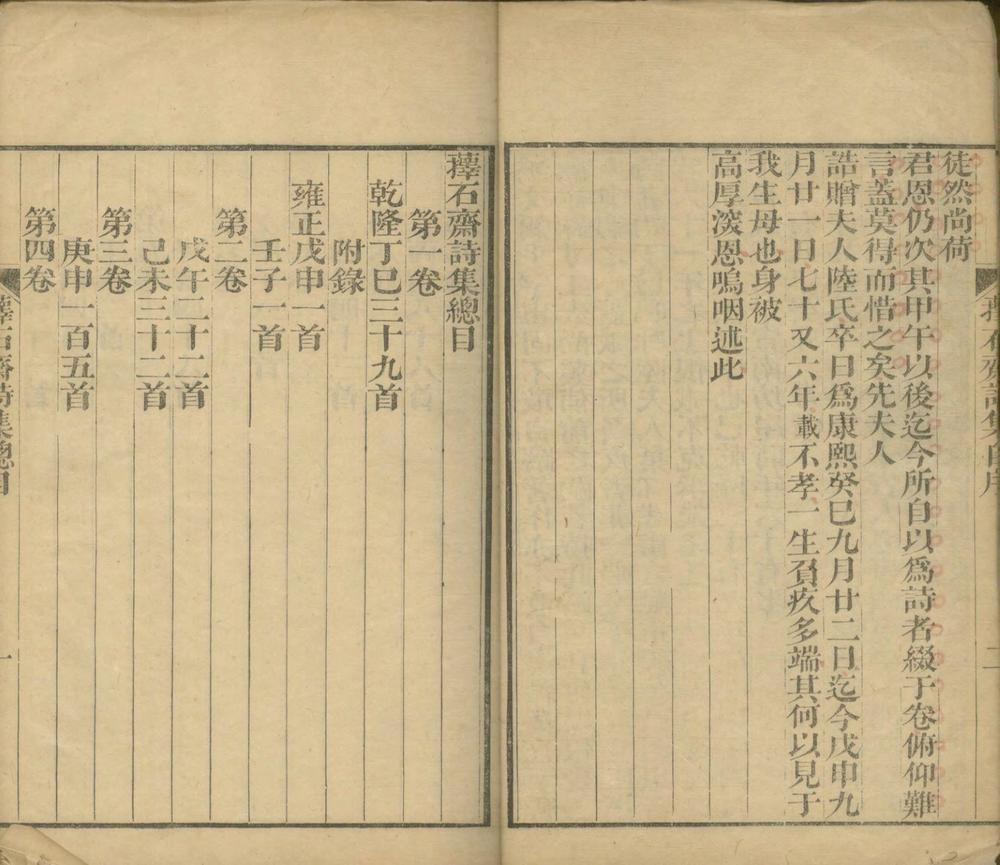 徒然尚荷
君恩仍次其甲午以後迄今所自以爲詩者綴于卷俯仰難
言蓋莫得而惜之矣先夫人
誥贈夫人陸氏卒日爲康熙癸巳九月廿二日迄今戊申九
月廿一日七十又六年載不孝一生負疚多端其何以見于
我生母也身被
高厚深恩嗚咽述此
蘀石齋詩集總目
第一卷
乾隆丁巳三十九首
附錄
雍正戊申一首
壬子一首
第二卷
戊午二十二首
己未三十二首
第三卷
庚申一百五首
第四卷
蘀石齋詩集總目
一